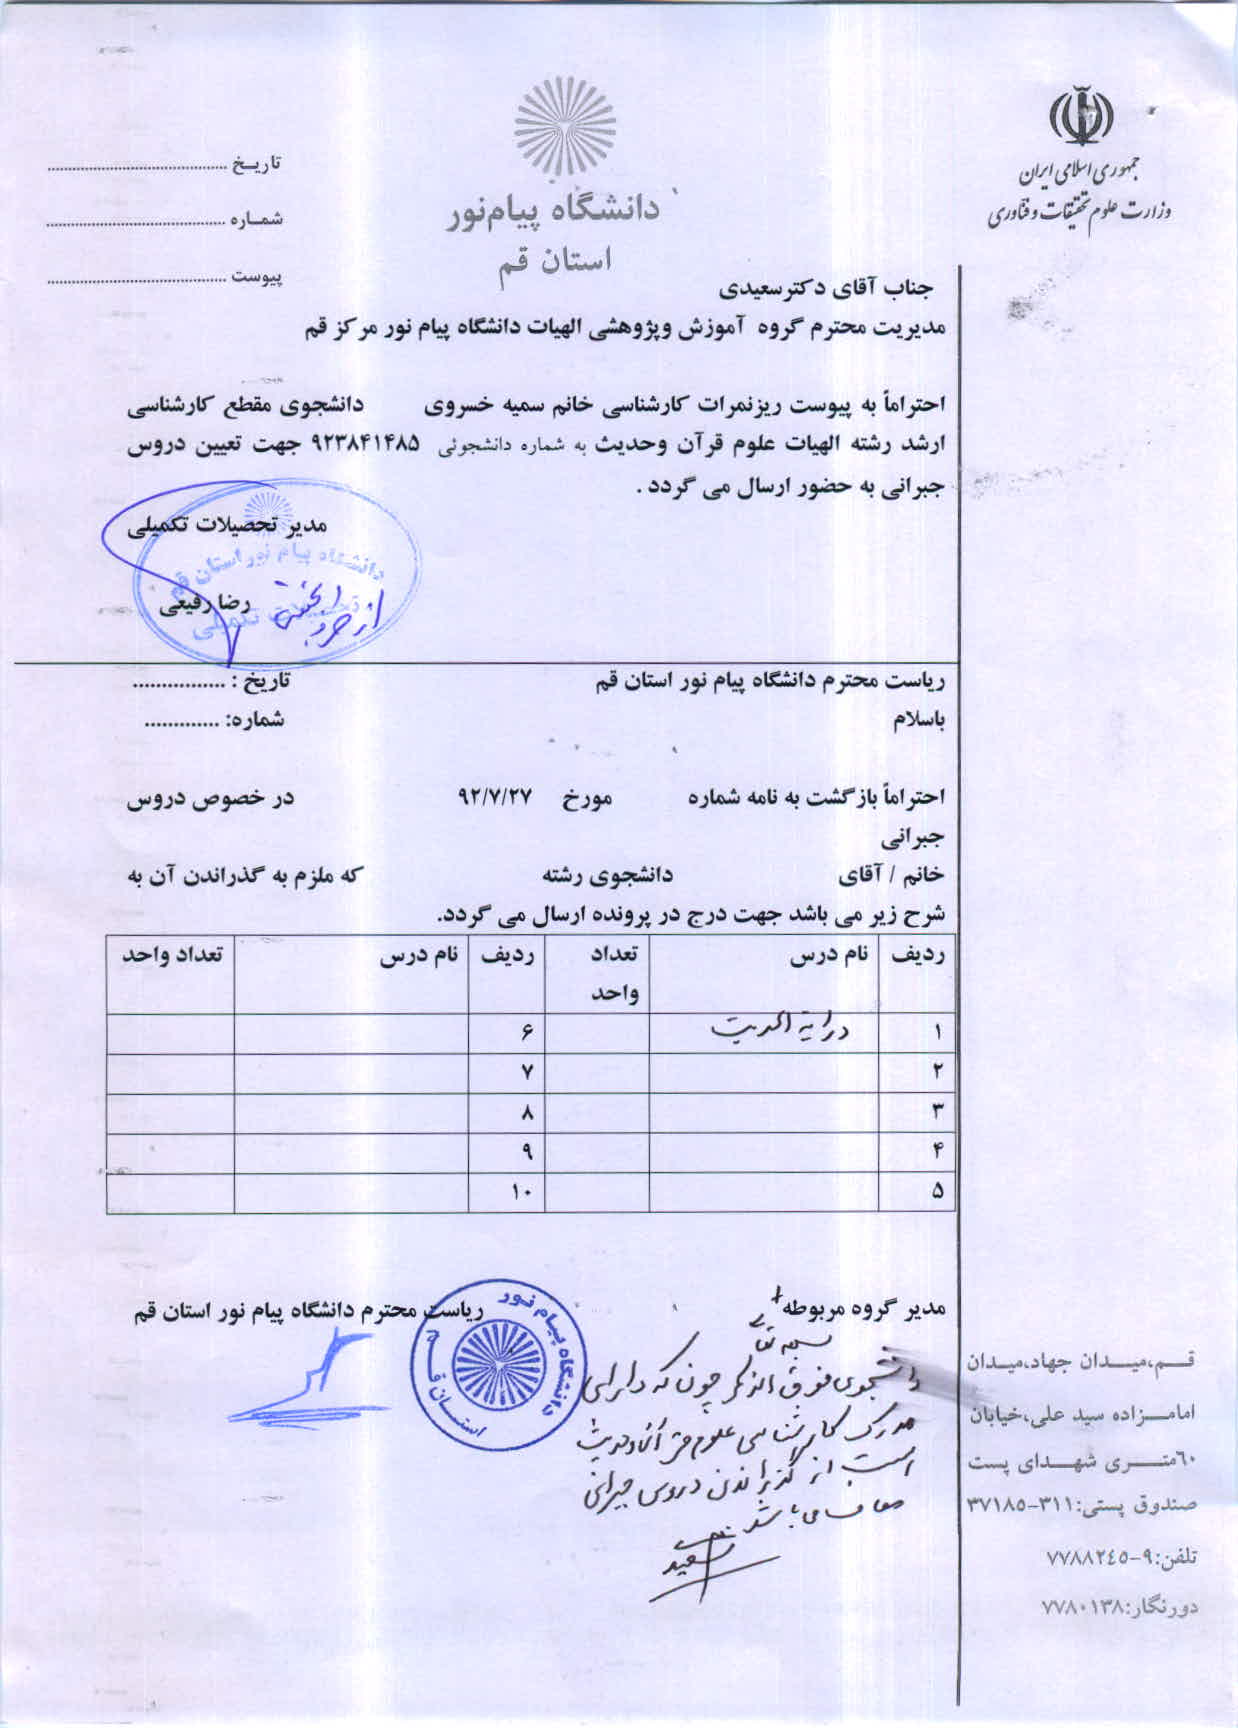 جمهوری اسلامی ایران
وزارت علوم تحقیقات و فناوری
دانشگاه پیام‌نور
استان قم
تاریـخ ........................................
شمـاره ........................................
پیوست ........................................
جناب آقای دکترسعیدی
مدیریت محترم گروه آموزش وپژوهشی الهیات دانشگاه پیام نور مرکز قم
احتراماً به پیوست ریزنمرات کارشناسی خانم سمیه خسروی دانشجوی مقطع کارشناسی
ارشد رشته الهیات علوم قرآن وحدیث به شماره دانشجوئی ۹۲۳۸۴۱۴۸۵ جهت تعیین دروس
جبرانی به حضور ارسال می گردد .
مدیر تحصیلات تکمیلی
دانشگاه پیام نور استان قم
تحصیلات تکمیلی
رضا رفیعی
ریاست محترم دانشگاه پیام نور استان قم تاریخ : ................
باسلام شماره: .............
احتراماً بازگشت به نامه شماره مورخ ۹۲/۷/۲۷ در خصوص دروس
جبرانی
خانم / آقای دانشجوی رشته که ملزم به گذراندن آن به
شرح زیر می باشد جهت درج در پرونده ارسال می گردد.
ردیف نام درس تعداد واحد ردیف نام درس تعداد واحد
۱ درایة الحدیث ۶
۲ ۷
۳ ۸
۴ ۹
۵ ۱۰
مدیر گروه مربوطه ریاست محترم دانشگاه پیام نور استان قم
دانشگاه پیام نور
استان قم
بسمه تعالی
دانشجوی فوق الذکر چون که دارای
مدرک کارشناسی علوم قرآن و حدیث
است از گذراندن دروس جبرانی
معاف می باشد.
سعیدی
قـم،میـدان جهاد،میدان
امامـزاده سید علی،خیابان
٦٠متـری شهـدای پست
صندوق پستی:۳۱۱-۳۷۱۸۵
تلفن:۹-۷۷۸۸۲٤۵
دورنگار:۷۷۸۰۱۳۸